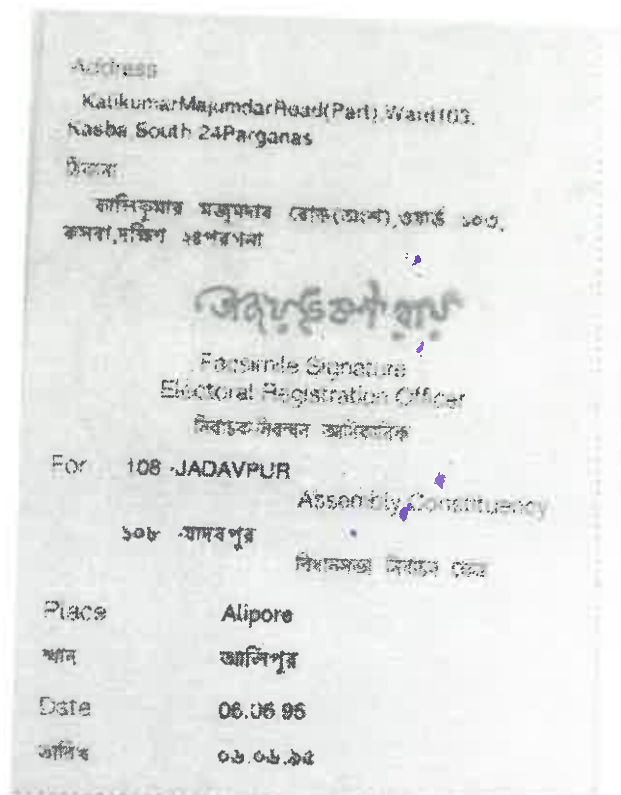 Address
KalikumarMajumdarRoad(Part),Ward103,
Kasba,South 24Parganas
ঠিকানা
কালিকুমার মজুমদার রোড(অংশ),ওয়ার্ড ১০৩,
কসবা,দক্ষিণ ২৪পরগনা
Facsimile Signature
Electoral Registration Officer
নির্বাচক-নিবন্ধন আধিকারিক
For 108 -JADAVPUR
Assembly Constituency
১০৮ -যাদবপুর
বিধানসভা নির্বাচন ক্ষেত্র
Place Alipore
স্থান আলিপুর
Date 06.06.95
তারিখ ০৬.০৬.৯৫